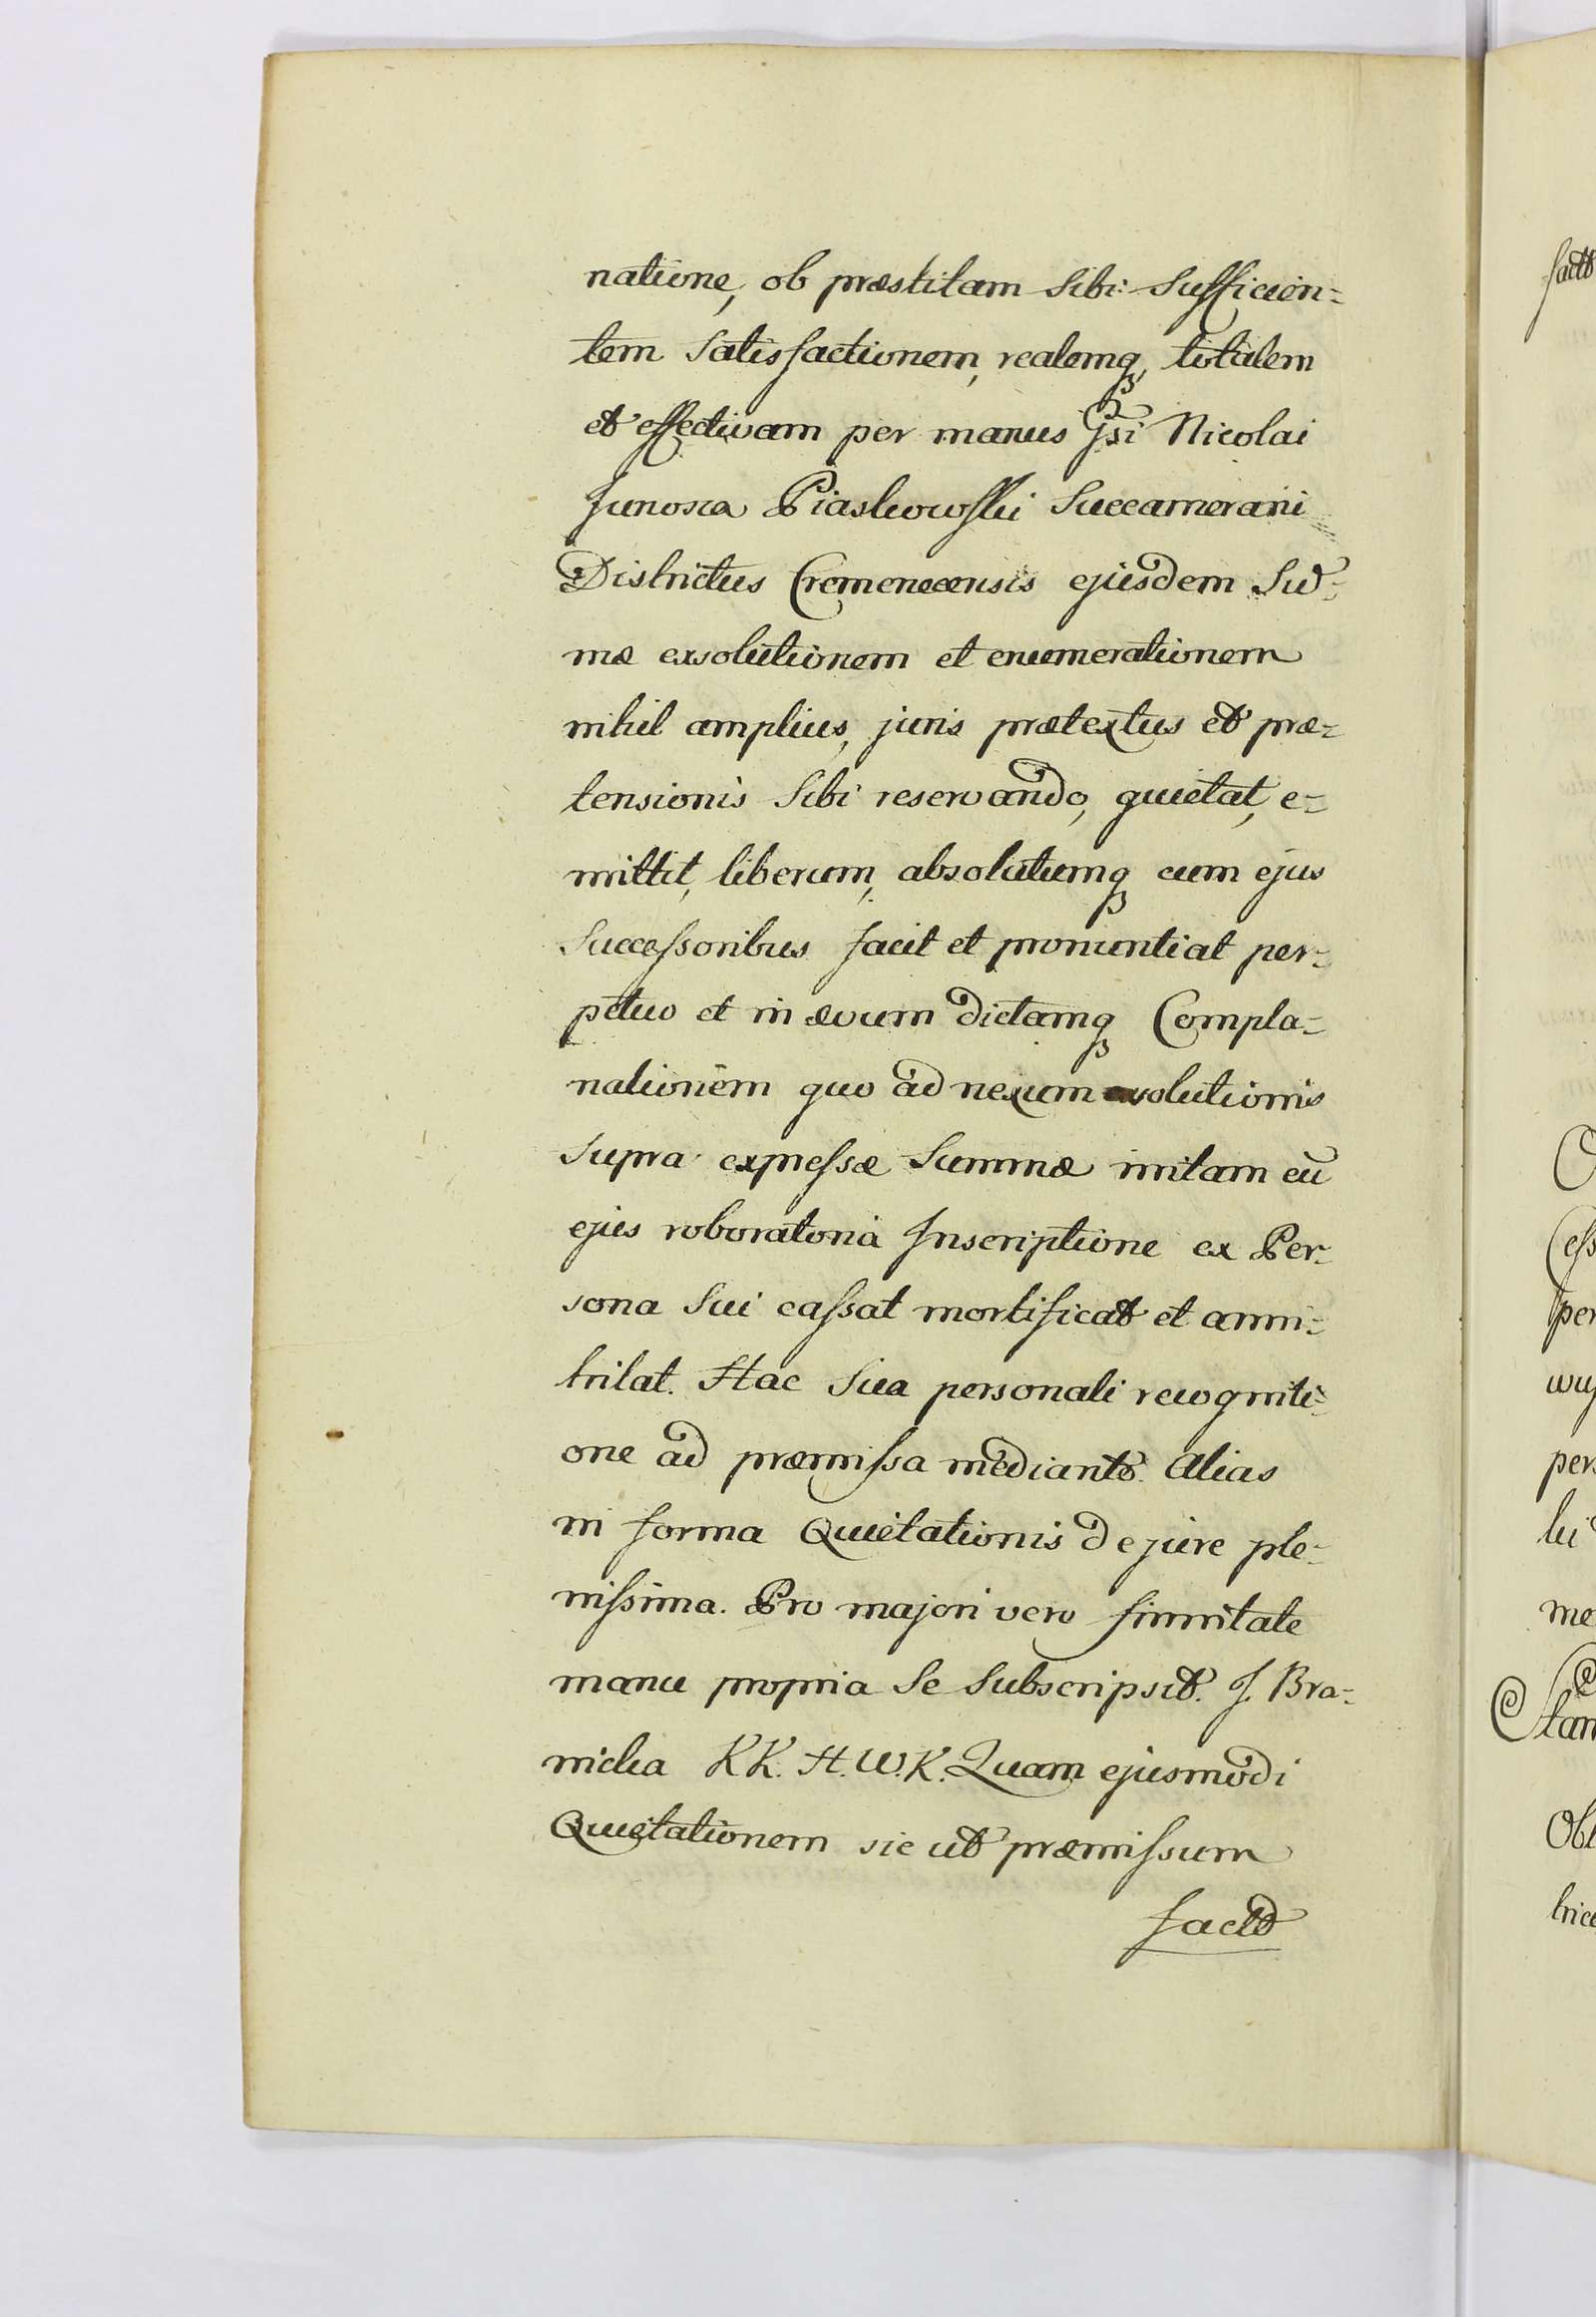 natione, ob præstitam Sibi Sufficien=
tem Satisfactionem, realemq, totalem
et effectivam per manus Gsi Nicolai
Junosza Piaskowski Succamerarii
Districtus Cremenecensis ejusdem Su=
mæ exsolutionem et enumerationem
nihil amplius, juris prætextus et præ=
tensionis Sibi reservando, quietat, e=
mittit, liberum, absolutumq cum ejus
Successoribus facit et pronuntiat per=
petuo et in ævum dictamq Compla=
nationem quo ad nexum exolutionis
Supra expressæ Summæ initam cū
ejus roboratoria Inscriptione ex Per=
sona Sui cassat mortificat et anni=
hilat. Hac Sua personali recogniti=
one ad præmissa mediante. Alias
in forma Quietationis de jure ple=
nissima. Pro majori vero firmitate
manu propria Se Subscripsit. J. Bra=
nicka KK. H. W. K. Quam ejusmodi
Quietationem sic ut præmissum
fact
fact
Cess
per
wuj
pers
me
Stan
Obl